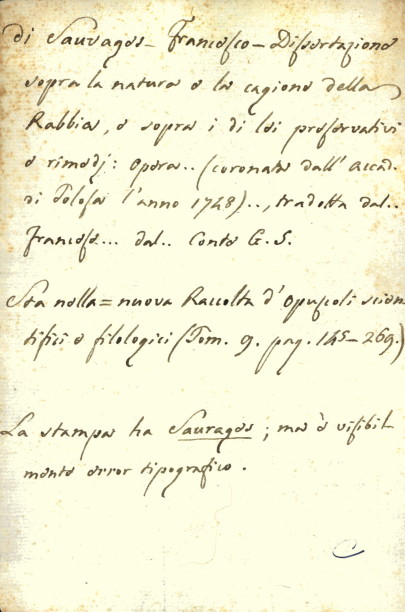 di Sauvages - Francesco - Dissertazione
sopra la natura e la cagione della
Rabbia, e sopra i di lei preservativi
e rimedj: opera.. (coronata dall' Accad.
di Tolosa l'anno 1748).., tradotta dal..
Francese... dal.. Conte G. S.
Sta nella = nuova Raccolta d'opuscoli scien
tifici e filologici (Tom. 9. pag. 145-269.)
La stampa ha Sauragos; ma è visibil
mente error tipografico.